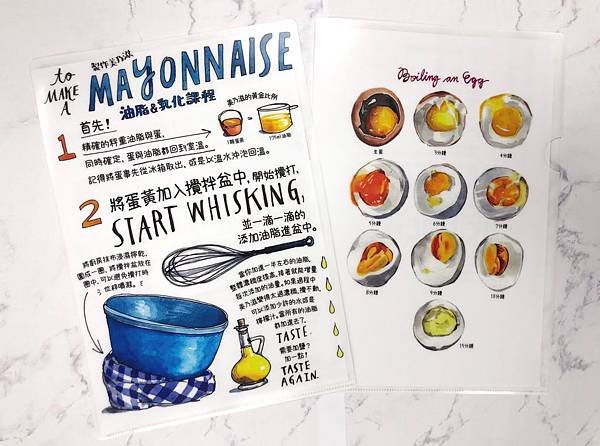 to
MAKE
A
製作美乃滋
MAYONNAISE
油脂&乳化課程
1 首先!
精確的秤重油脂與蛋,
同時確定,蛋與油脂都回到室溫。
記得將蛋事先從冰箱取出,或是以溫水沖泡回溫。
美乃滋的黃金比例
1顆蛋黃
175ml油脂
2 將蛋黃加入攪拌盆中,開始攪打,
START WHISKING,
並一滴一滴的
添加油脂進盆中。
將廚房抹布浸濕擰乾,
圍成一圈,將攪拌盆放在
圈中,可以避免攪打時
當你加進一半左右的油脂,
整體濃稠度提高,接著就能增量
每次添加的量。如果過程中
美乃滋變得太過濃稠,攪不動,
可以添加少許的水或是
檸檬汁。當所有的油脂
都加進去了,
TASTE.
需要加鹽?
加一點!
TASTE
AGAIN.
Boiling an Egg
生蛋
3分鐘
4分鐘
5分鐘
6分鐘
7分鐘
8分鐘
9分鐘
10分鐘
14分鐘